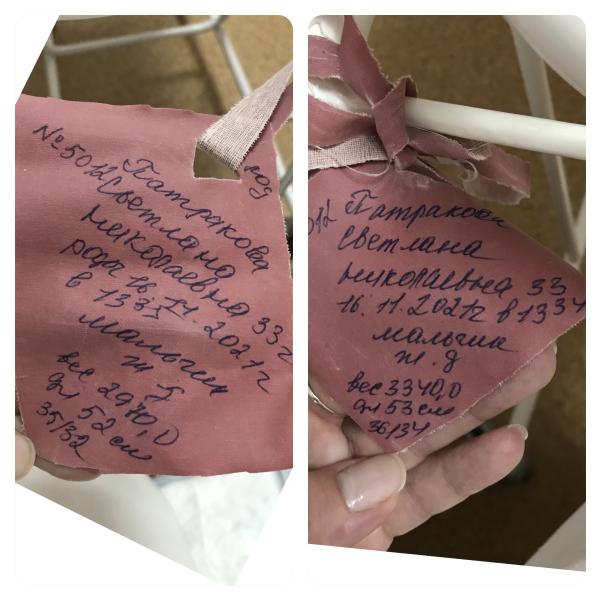 № 5012
Патракова
Светлана
Николаевна 33 г
род 16.11.2021г
в 1335
мальчик
ж д
вес 2940,0
дл 52 см
35/32
Патракова
Светлана
Николаевна 33
16.11.2021г в 1334
мальчик
ж.д
вес 3340,0
дл 53 см
36/34